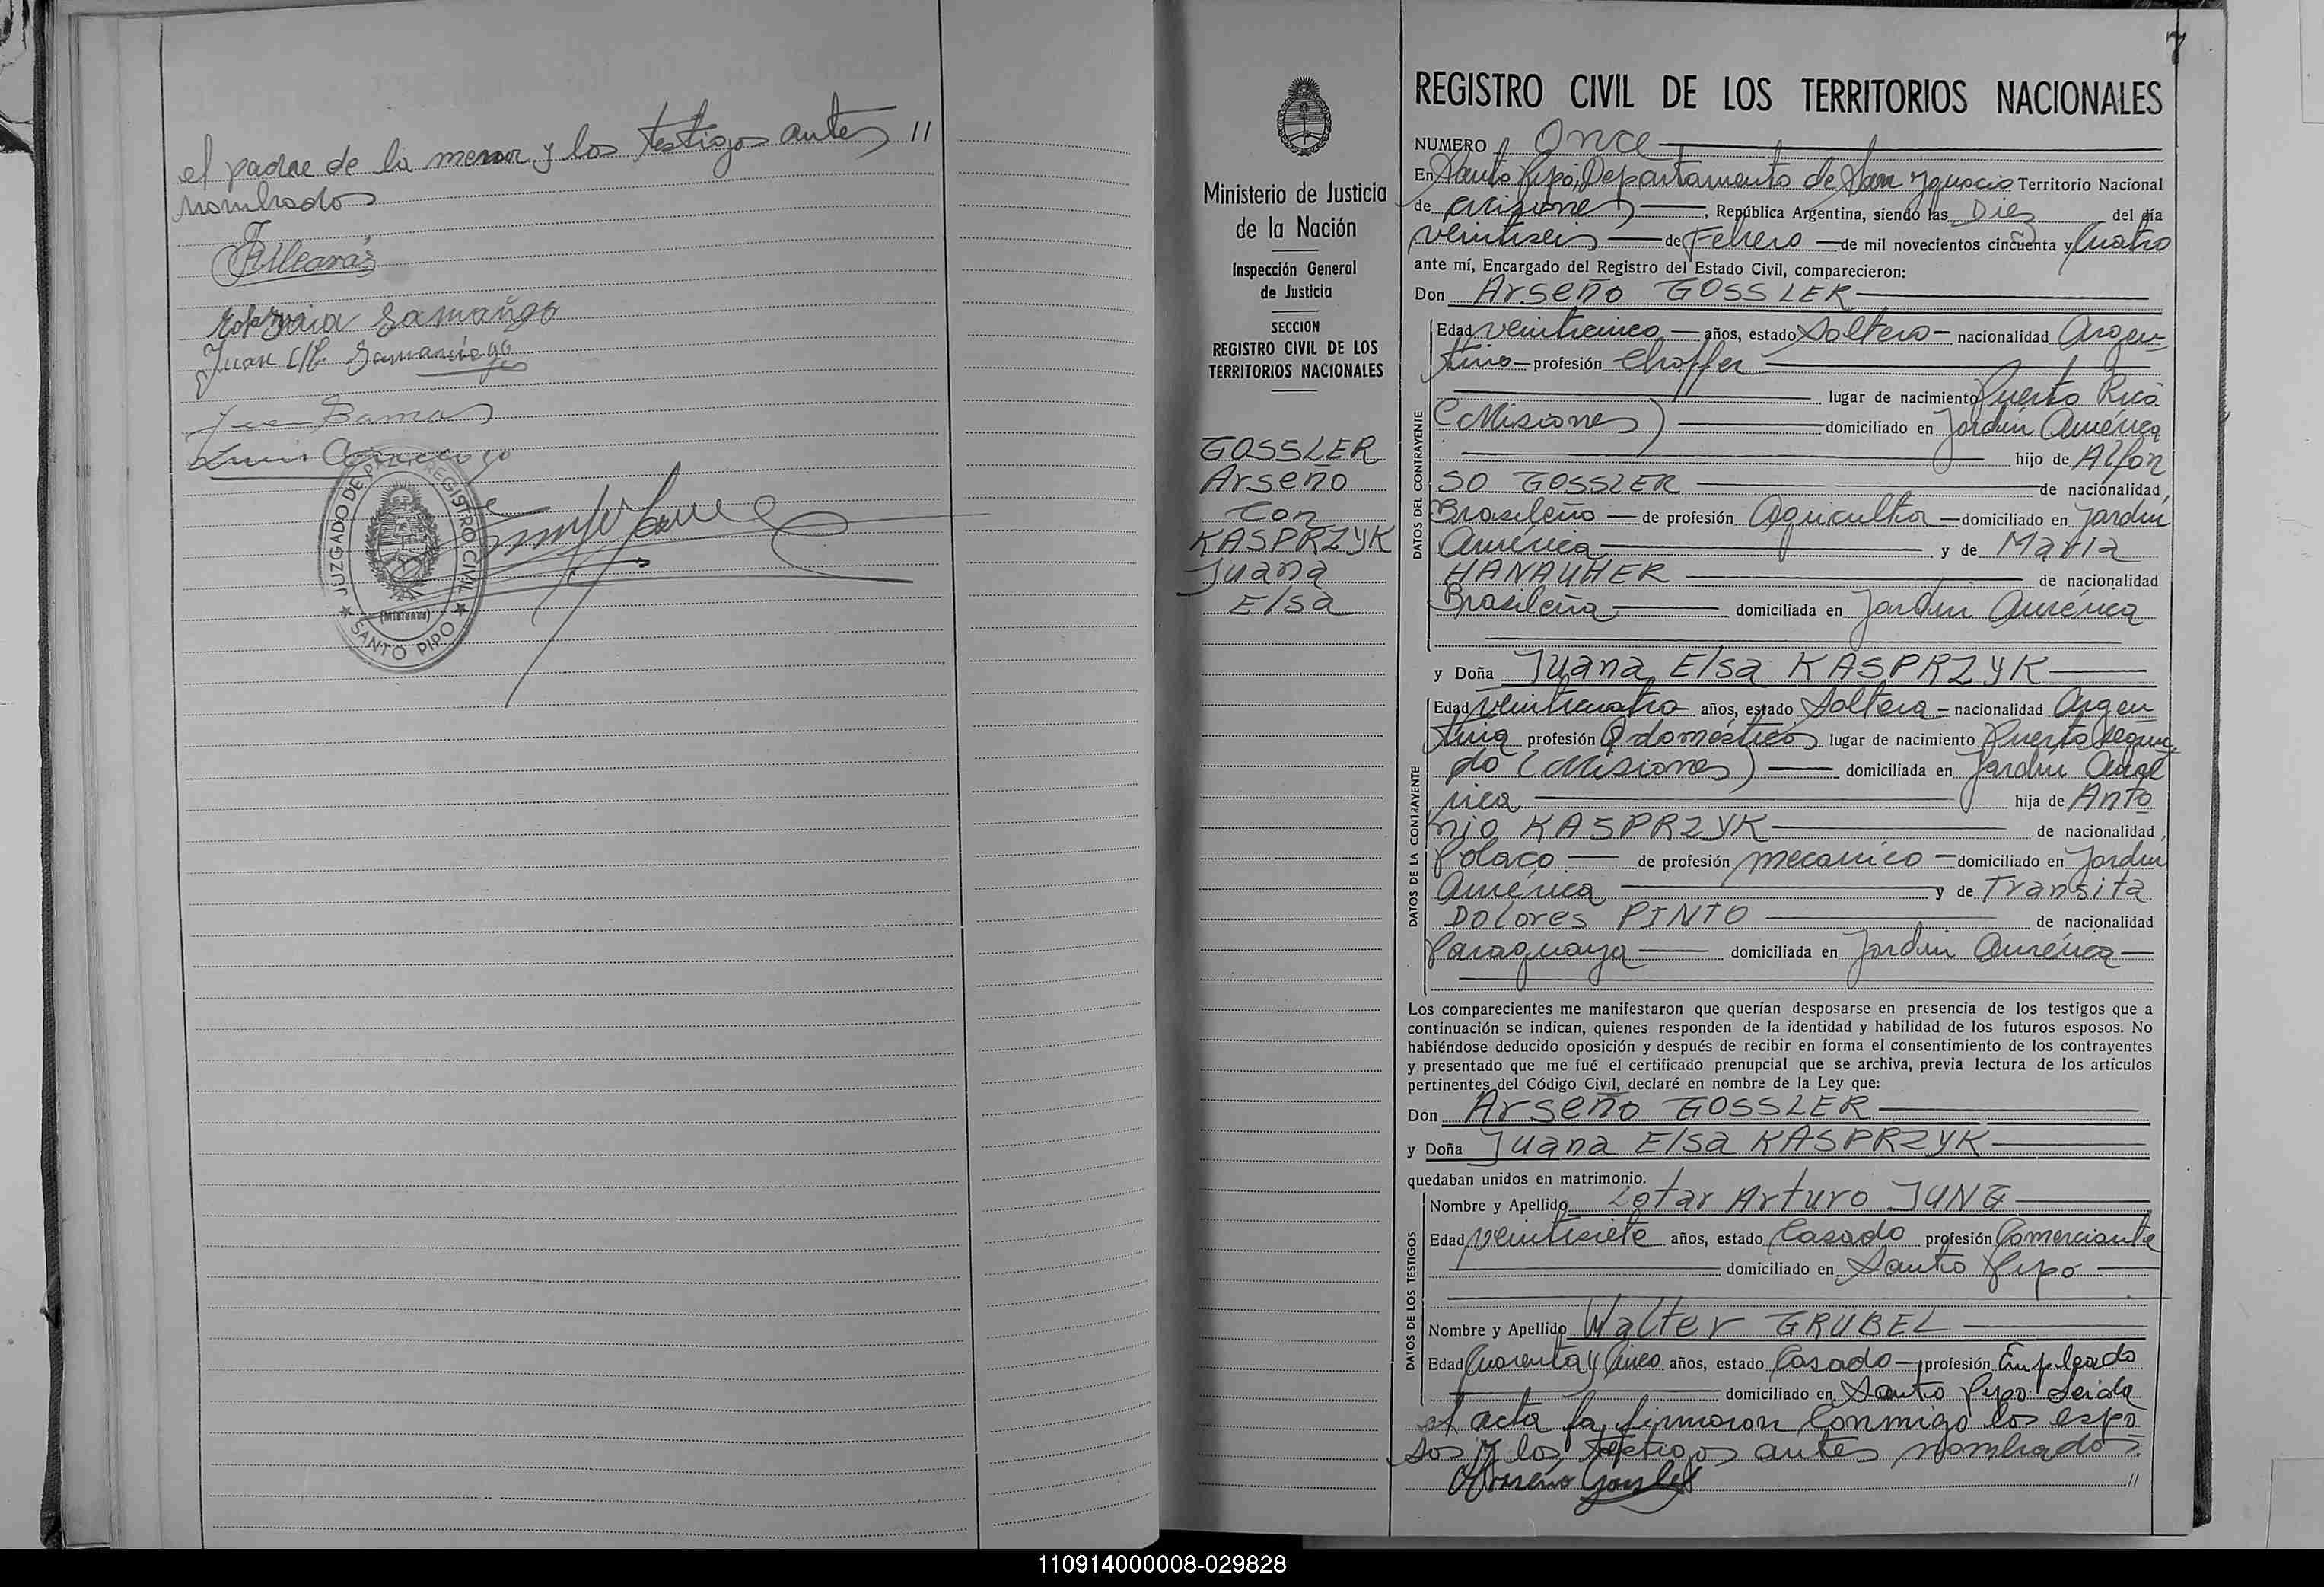 el padre de la menor y los testigos antes //
nombrados
Juan Ramos
JUZGADO DE PAZ Y REGISTRO CIVIL
(Misiones)
★ SANTO PIPO ★
7
REGISTRO CIVIL DE LOS TERRITORIOS NACIONALES
Ministerio de Justicia
de la Nación
Inspección General
de Justicia
SECCION
REGISTRO CIVIL DE LOS
TERRITORIOS NACIONALES
GOSSLER
Arseño
Con
KASPRZYK
Juana
Elsa
NUMERO Once
En Santo Pipó, Departamento de San Ignacio Territorio Nacional
de Misiones, República Argentina, siendo las Diez del día
veintiseis de Febrero de mil novecientos cincuenta y Cuatro
ante mí, Encargado del Registro del Estado Civil, comparecieron:
Don Arseño GOSSLER
DATOS DEL CONTRAYENTE
Edad veinticinco años, estado Soltero nacionalidad Argen
tino profesión Choffer
lugar de nacimiento Puerto Rico
(Misiones) domiciliado en Jardin América
hijo de Alfon
so GOSSLER de nacionalidad
Brasileño de profesión Agricultor domiciliado en Jardin
América y de María
HANAUHER de nacionalidad
Brasileña domiciliada en Jardin América
y Doña Juana Elsa KASPRZYK
DATOS DE LA CONTRAYENTE
Edad veinticuatro años, estado Soltera nacionalidad Argen
tina profesión Q domésticos lugar de nacimiento Puerto Segun
do (Misiones) domiciliada en Jardin Amé
rica hija de Anto
nio KASPRZYK de nacionalidad
Polaco de profesión mecanico domiciliado en Jardin
América y de Transita
DOLORES PINTO de nacionalidad
Paraguaya domiciliada en Jardin América
Los comparecientes me manifestaron que querían desposarse en presencia de los testigos que a
continuación se indican, quienes responden de la identidad y habilidad de los futuros esposos. No
habiéndose deducido oposición y después de recibir en forma el consentimiento de los contrayentes
y presentado que me fué el certificado prenupcial que se archiva, previa lectura de los artículos
pertinentes del Código Civil, declaré en nombre de la Ley que:
Don Arseño GOSSLER
y Doña Juana Elsa KASPRZYK
quedaban unidos en matrimonio.
DATOS DE LOS TESTIGOS
Nombre y Apellido Lotar Arturo JUNG
Edad veintisiete años, estado Casado profesión Comerciante
domiciliado en Santo Pipó
Nombre y Apellido Walter GRUBEL
Edad Cuarenta y Cinco años, estado Casado profesión Empleado
domiciliado en Santo Pipó. Leida
el acta la firmaron Conmigo los espo
sos y los testigos antes nombrados.
Arseño Gossler //
110914000008-029828